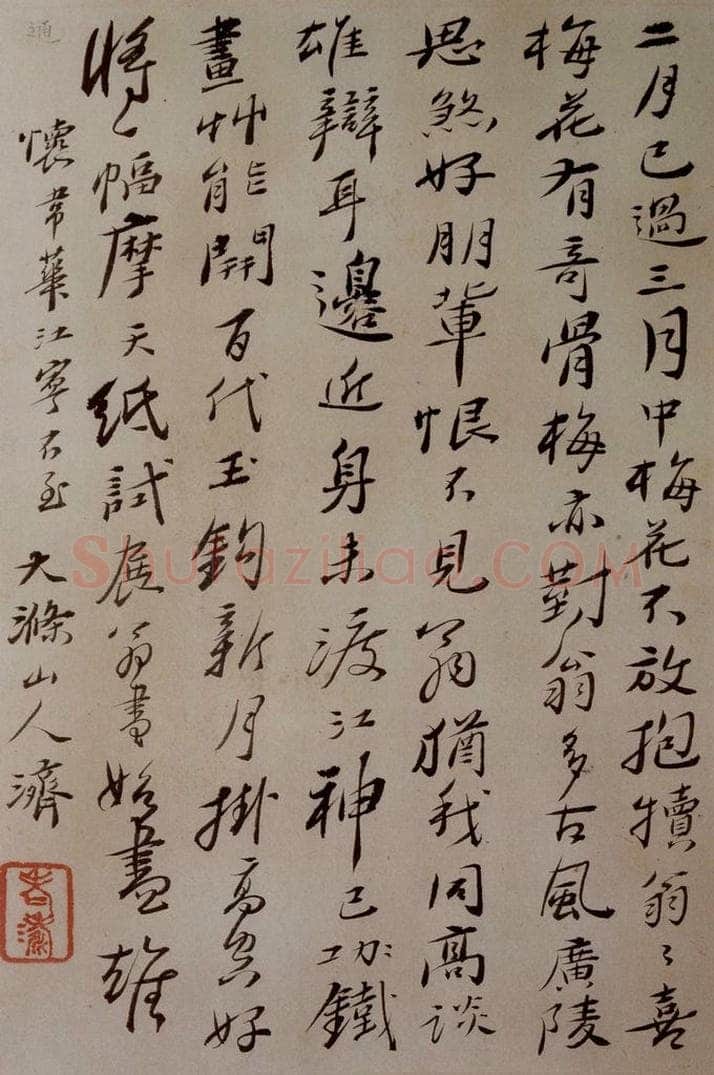 二月已過三月中梅花不放抱犢翁〻喜
梅花有奇骨梅亦對翁多古風廣陵
思煞好朋輩恨不見翁猶我同高談
雄辯耳邊近身未渡江神已功鐵
畫艸能開百代玉鈎新月掛高空好
將〻幅摩天紙試展翁書始盡雄
懷韋華江寧不至 大滌山人濟
通
Shufaziliao.COM